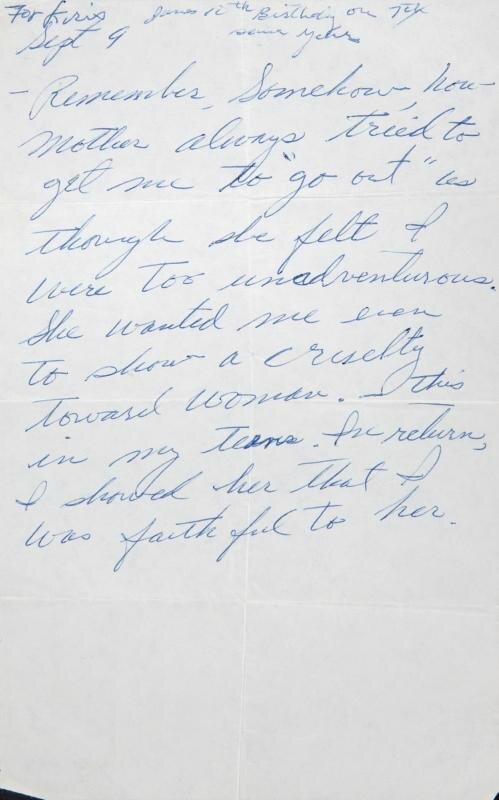 For Kris Janes 12th Birthday on
Sept 9 Same Year
- Remember, Somehow, how
Mother always tried to
get me to "go out" as
though she felt I
were too unadventurous.
She wanted me even
to show a cruelty
toward woman. - this
in my teens. In return,
I showed her that I
was faithful to her.